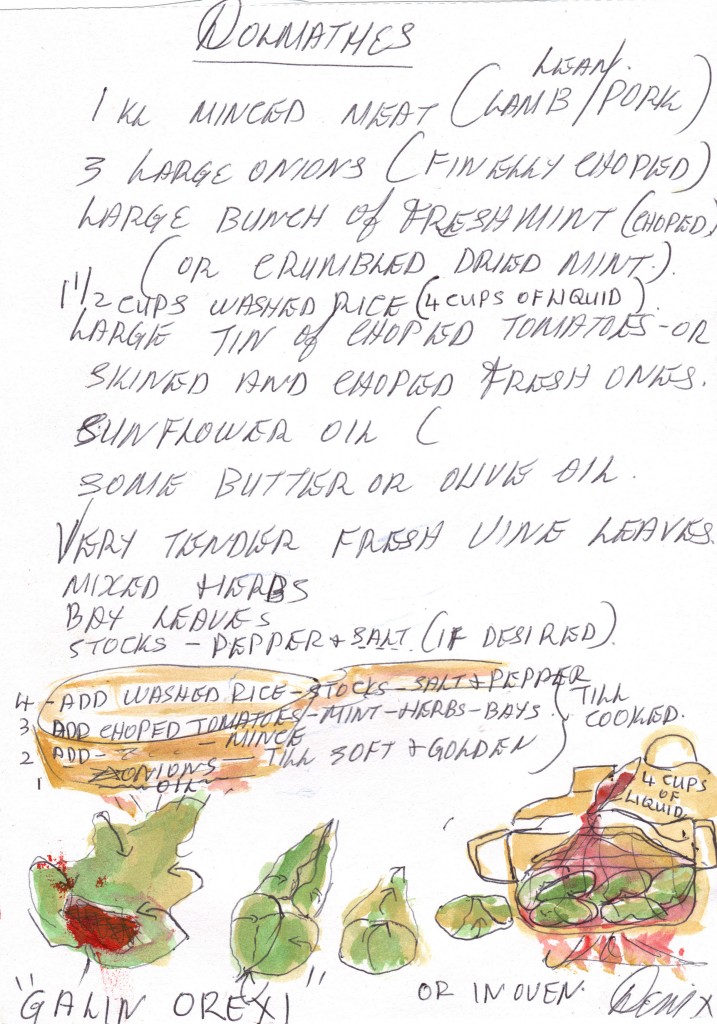 DOLMATHES
LEAN.
1 KL MINCED MEAT (LAMB/PORK)
3 LARGE ONIONS (FINELLY CHOPED)
LARGE BUNCH of FRESH MINT (CHOPED)
(OR CRUMBLED DRIED MINT.)
1 1/2 CUPS WASHED RICE (4 CUPS OF LIQUID)
LARGE TIN of CHOPED TOMATOES - OR
SKINED AND CHOPED FRESH ONES.
SUNFLOWER OIL (
SOME BUTTER OR OLIVE OIL.
VERY TENDER FRESH VINE LEAVES.
MIXED HERBS
BAY LEAVES
STOCKS - PEPPER + SALT (IF DESIRED).
4 - ADD WASHED RICE - STOCKS - SALT + PEPPER
3 ADD CHOPED TOMATOES - MINT - HERBS - BAYS
TILL
COOKED.
2 ADD - MINCE
ONIONS - TILL SOFT + GOLDEN
1 OIL
4 CUPS
OF
LIQUID
"GALIN OREXI"
OR IN OVEN.